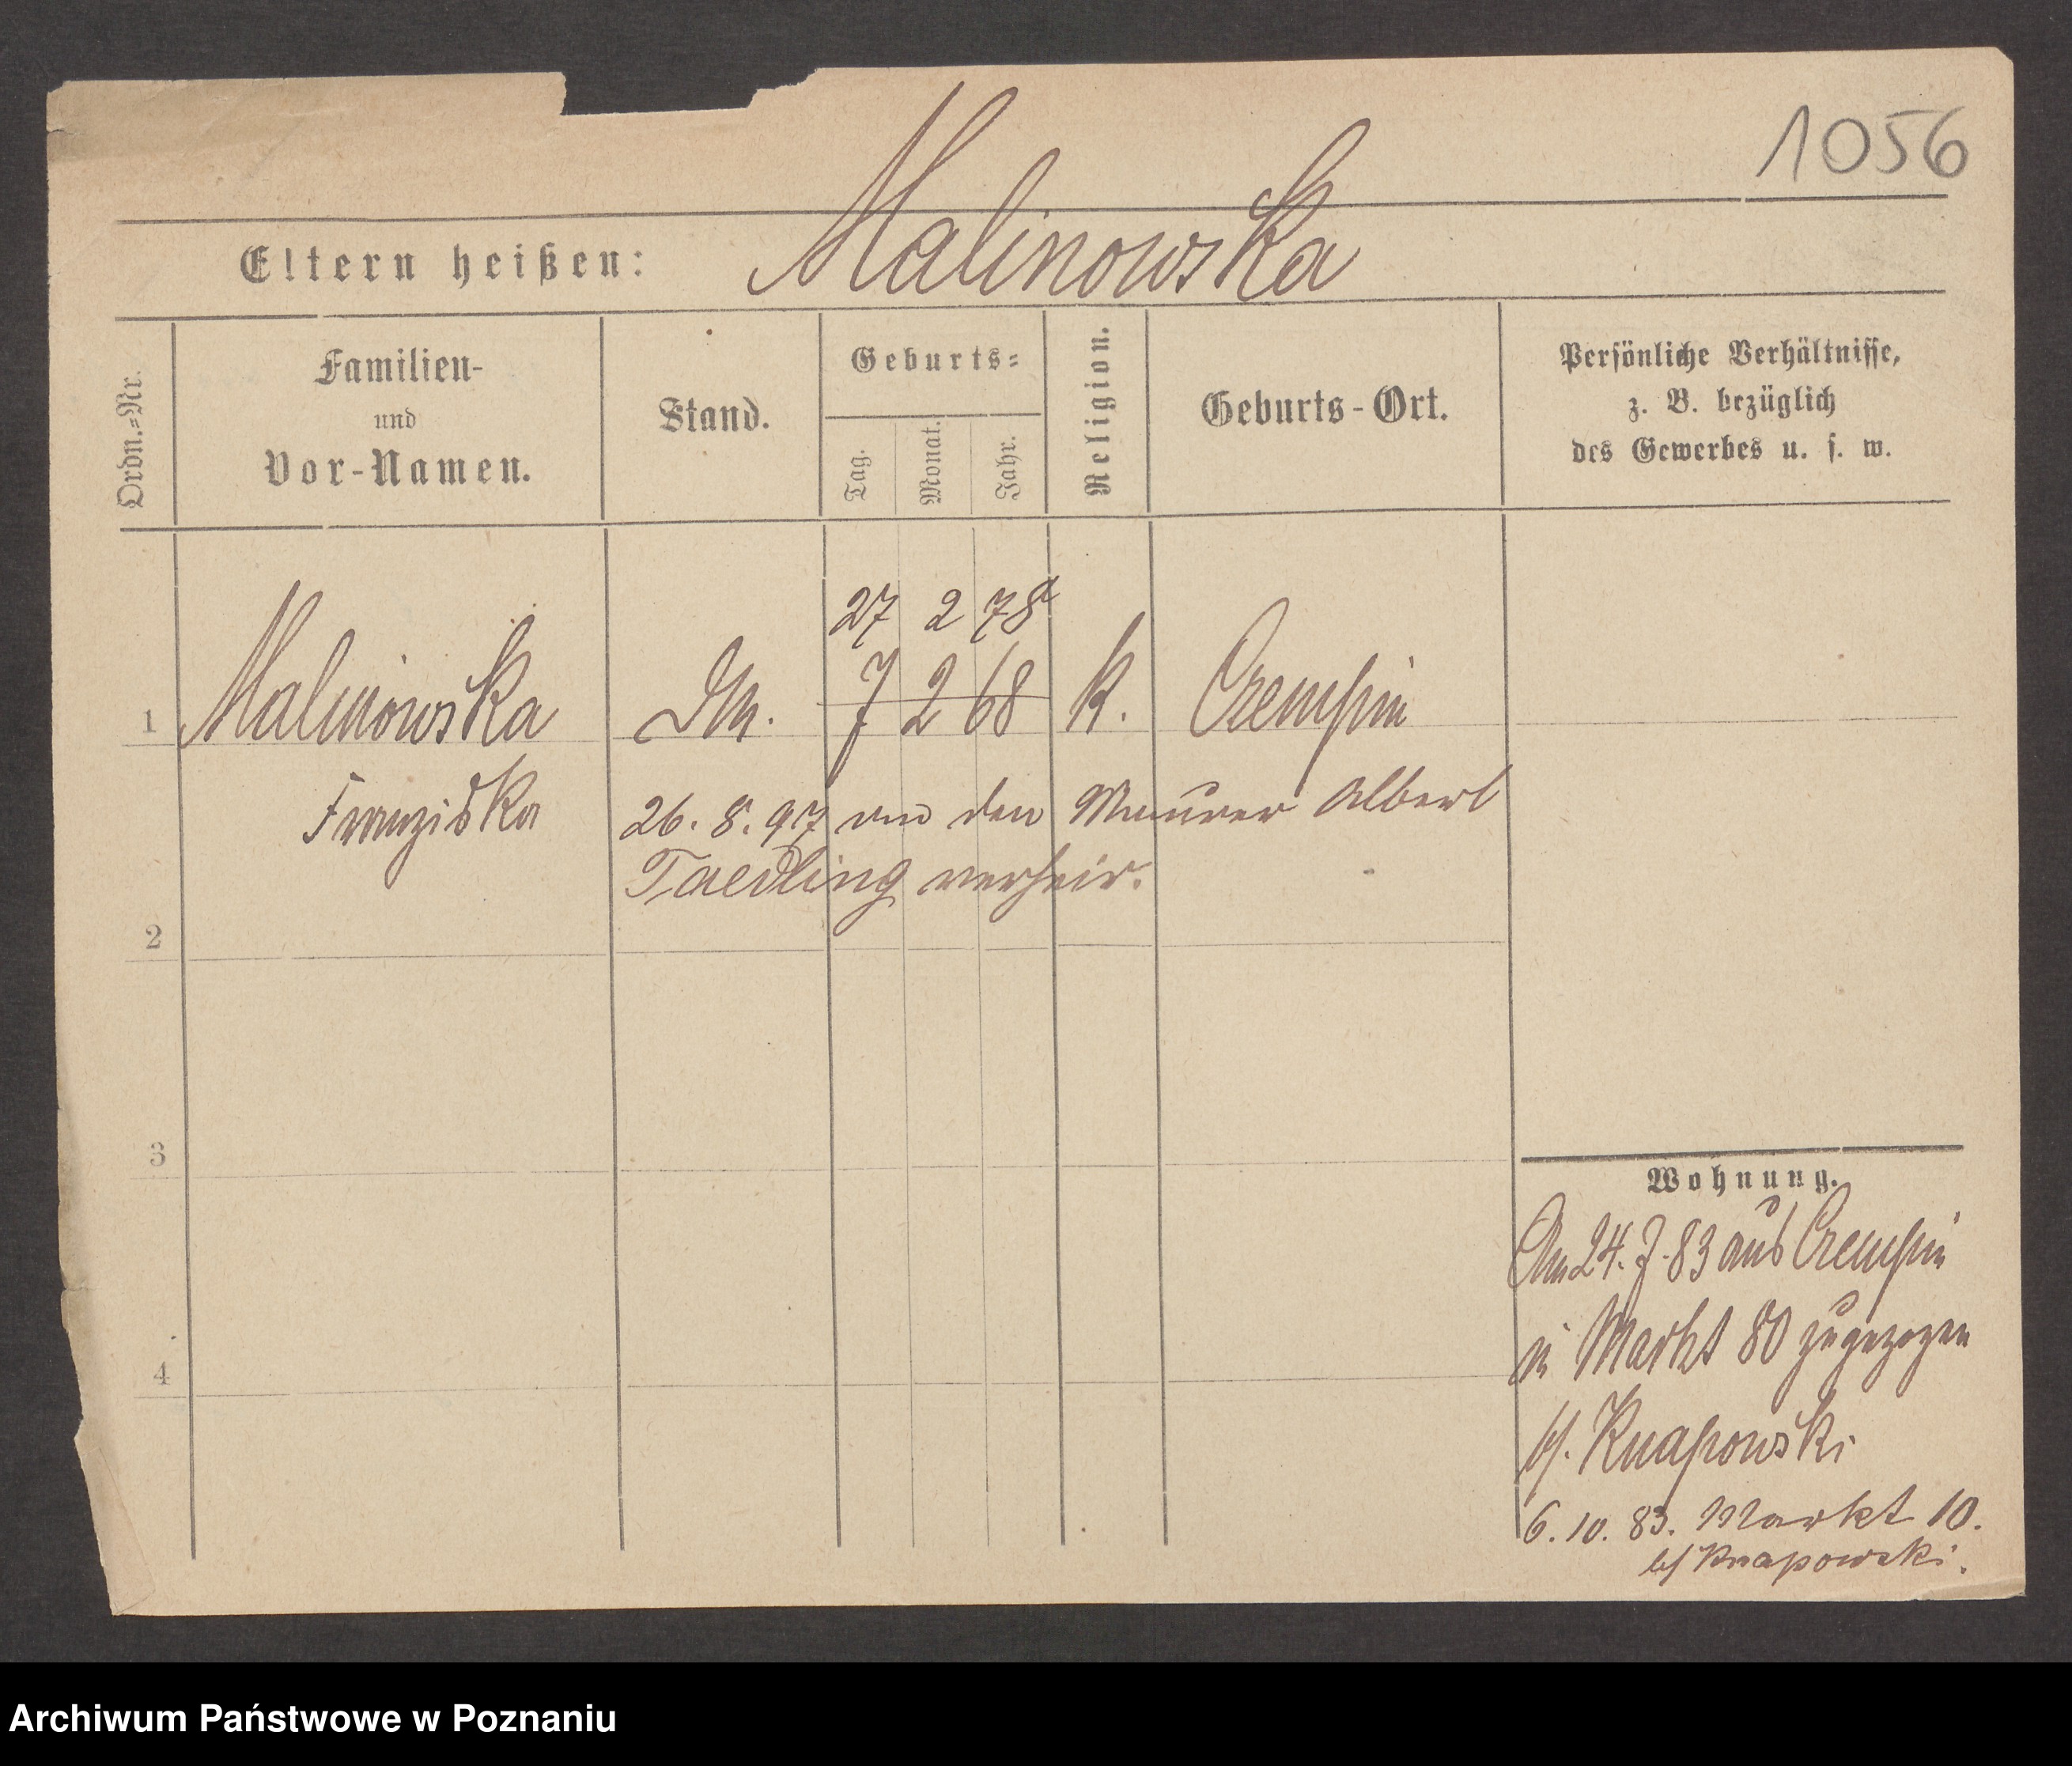 1056
Malinowska
Eltern heißen:
Ordn.=Nr.
Familien-
und
Vor-Namen.
Stand.
Geburts=
Tag.
Monat.
Jahr.
Religion.
Geburts-Ort.
Persönliche Verhältnisse,
z. B. bezüglich
des Gewerbes u. s. w.
27 2 78
1 Malinowska DM. 7 2 68 k. Czempin
Franziska 26. 8. 97 an den Maurer Albert
Taedling verheir.
2
3
4
Wohnung.
Am 24. 7. 83 aus Czempin
in Markt 80 zugezogen
b/. Knapowski
6. 10. 83. Markt 10.
b/ Knapowski.
Archiwum Państwowe w Poznaniu